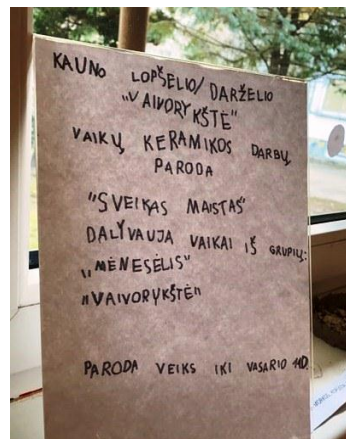 KAUNO LOPŠELIO/DARŽELIO
"VAIVORYKŠTĖ"
VAIKŲ KERAMIKOS DARBŲ
PARODA
"SVEIKAS MAISTAS"
DALYVAUJA VAIKAI IŠ GRUPIŲ:
„MĖNESĖLIS"
"VAIVORYKŠTĖ"
PARODA VEIKS IKI VASARIO 11D.